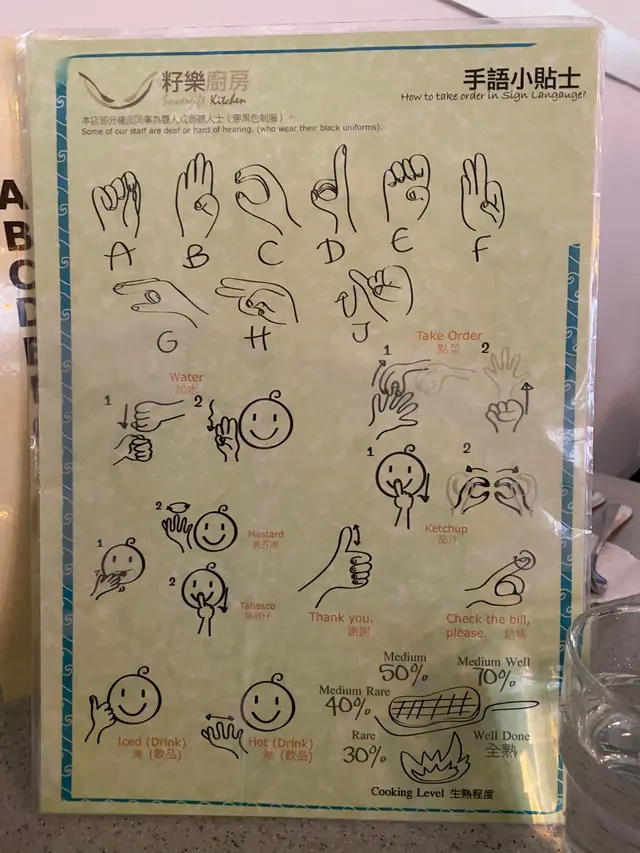 籽樂廚房
Sowergift Kitchen
手語小貼士
How to take order in Sign Langauge?
本店部分樓面同事為聾人或弱聽人士（穿黑色制服）。
Some of our staff are deaf or hard of hearing. (who wear their black uniforms).
A B C D E F
G H J
Take Order
點菜
1 2
Water
加水
1 2
1 2
Ketchup
茄汁
1
2
Mastard
黃芥末
2
Tabasco
辣椒仔
Thank you.
謝謝
Check the bill,
please. 結帳
Medium
50%
Medium Well
70%
Medium Rare
40%
Rare
30%
Well Done
全熟
Iced (Drink)
凍 (飲品)
Hot (Drink)
熱 (飲品)
Cooking Level 生熟程度
A
B
C
D
E